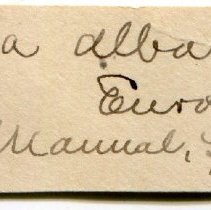 a alba
Euro
Manual,